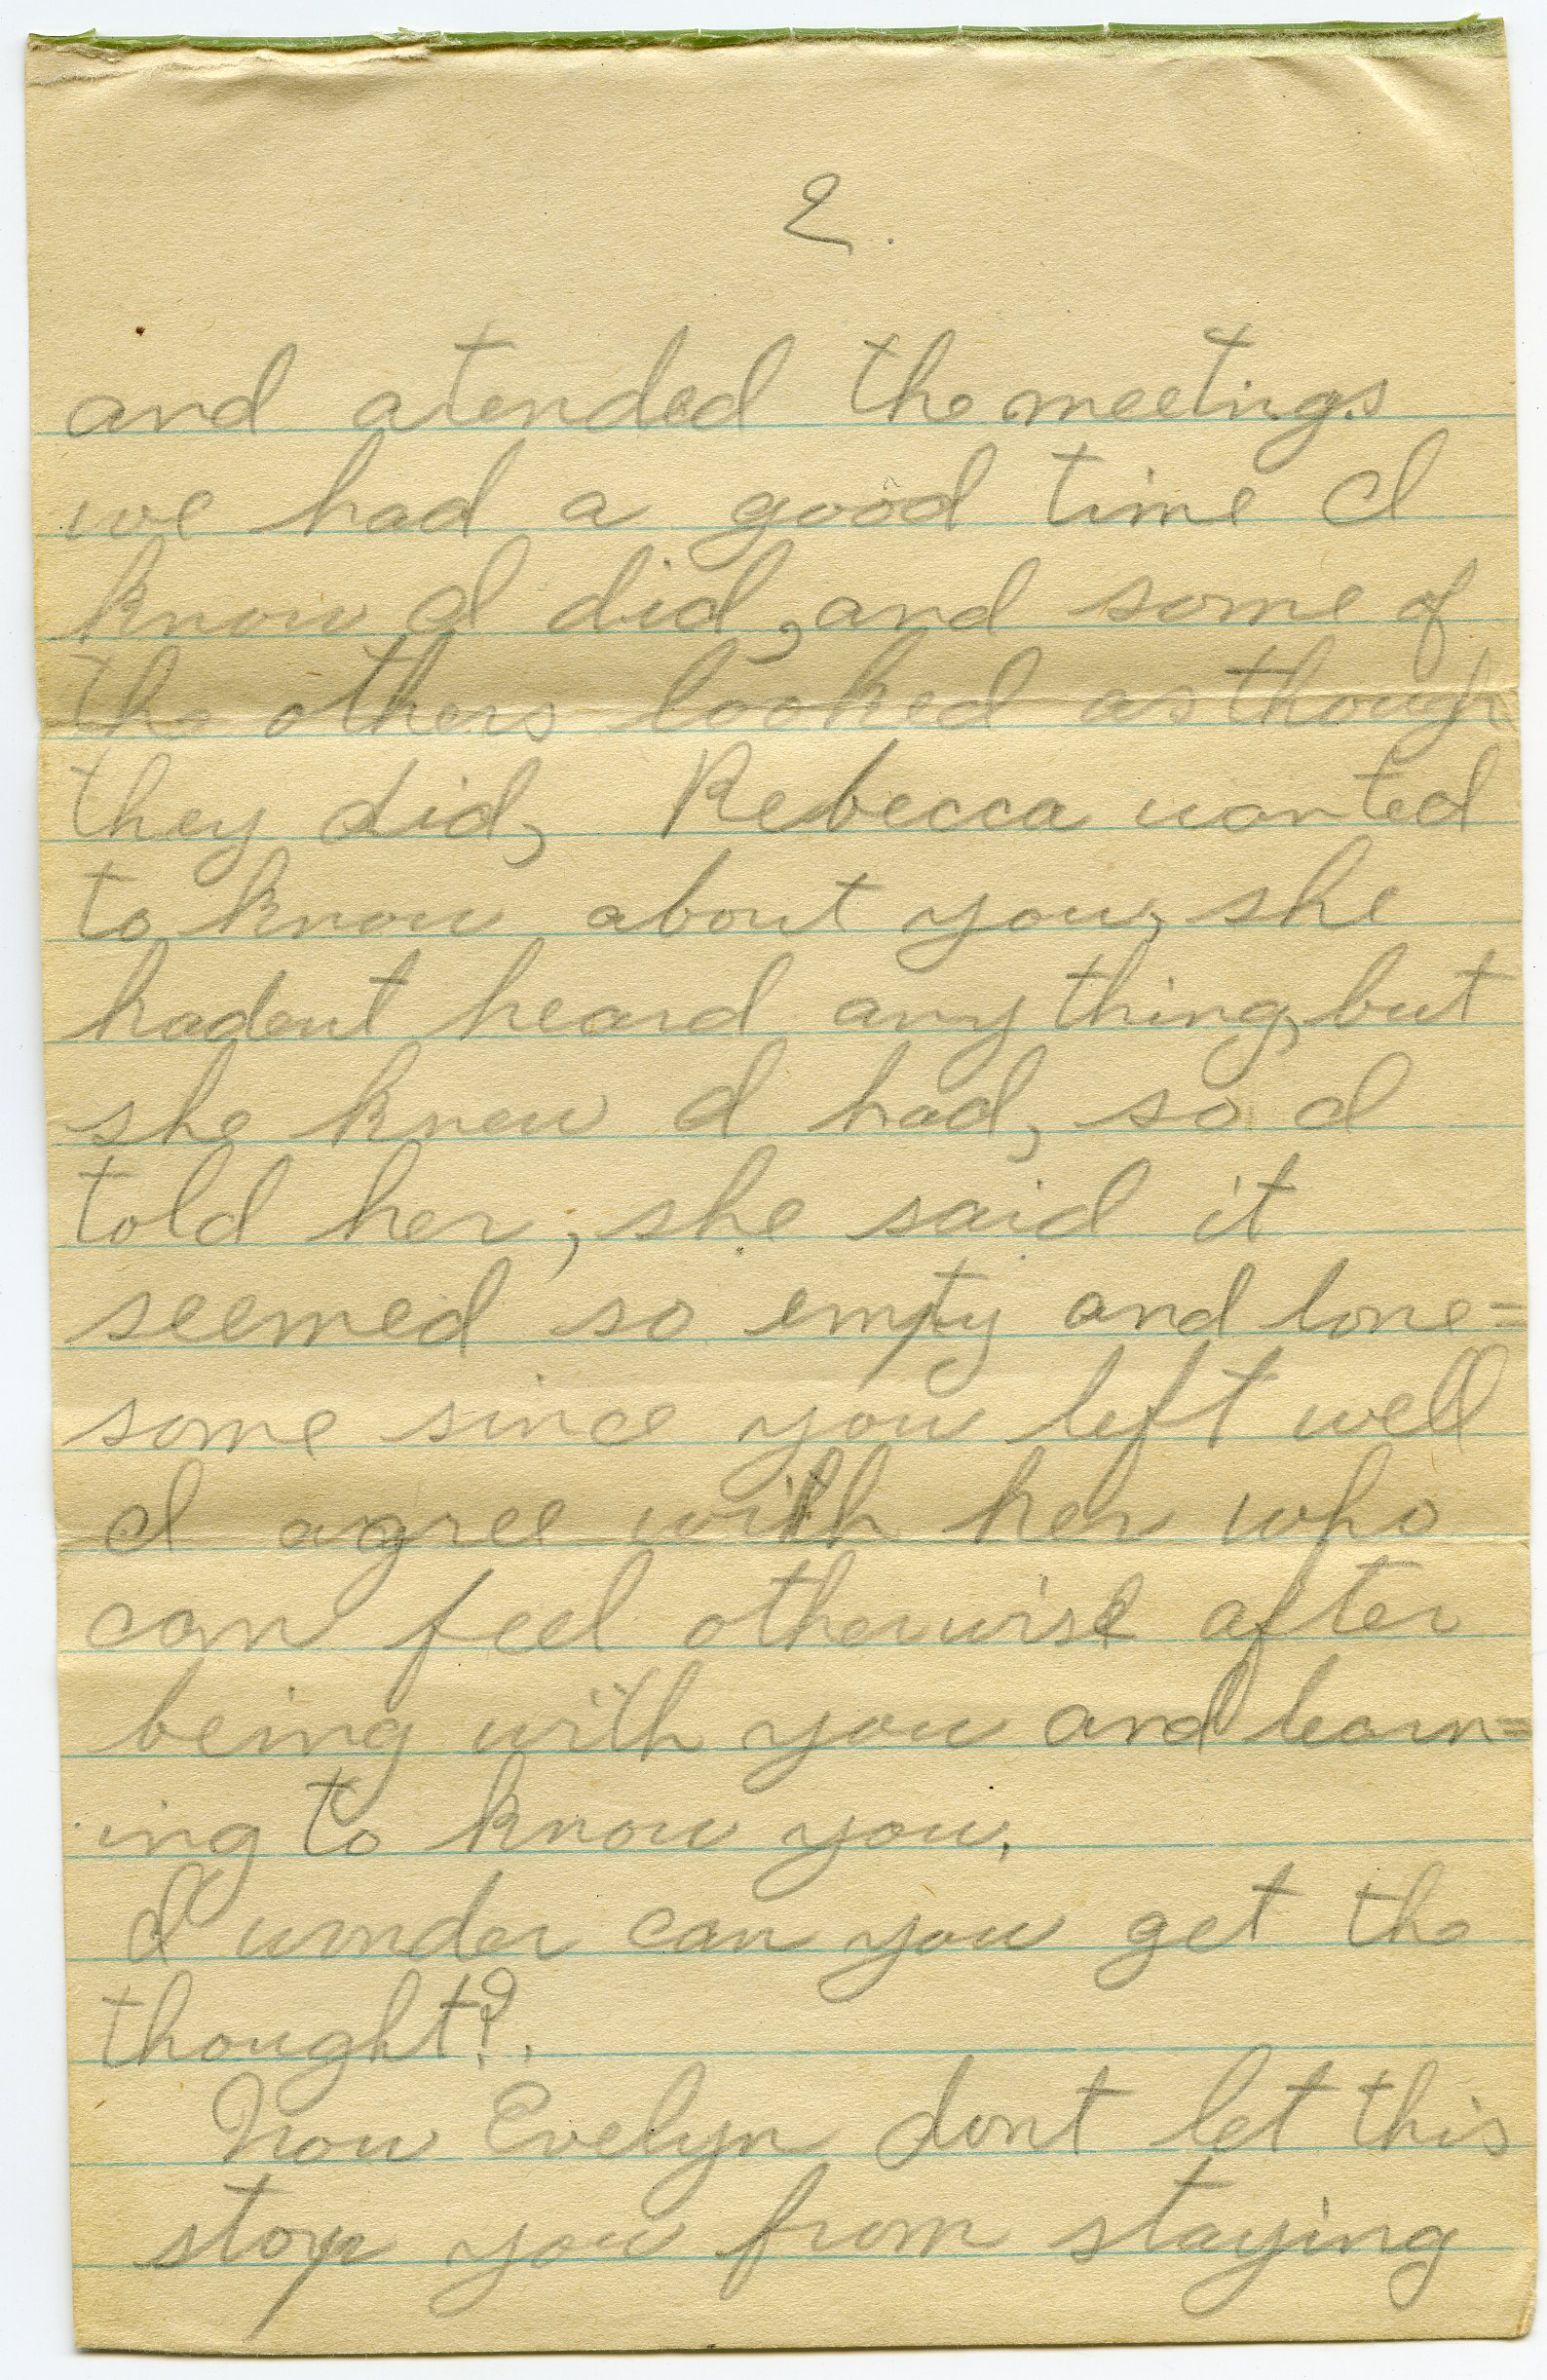 2.
and atended the meetings
we had a good time I
know I did, and some of
the others looked as though
they did, Rebecca wanted
to know about you, she
hadent heard any thing, but
she knew I had, so I
told her, she said it
seemed so empty and lone=
some since you left well
I agree with her who
can feel otherwise after
being with you and learn=
ing to know you.
I wonder can you get the
thought?.
Now Evelyn dont let this
stop you from staying